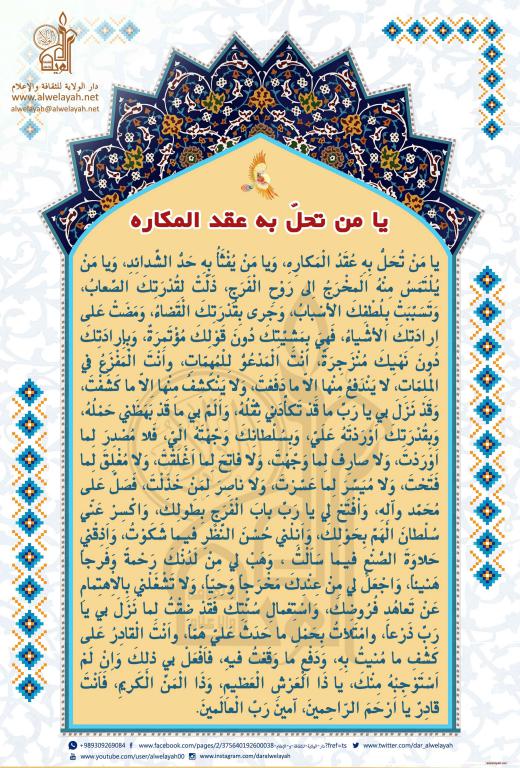 دار الولاية للثقافة والإعلام
www.alwelayah.net
alwelayah@alwelayah.net
يا من تحلّ به عقد المكاره
يا مَن تُحَلُّ بِهِ عُقَدُ الْمَكارِهِ، وَيا مَنْ يُفْثَأُ بِهِ حَدُّ الشَّدائِدِ، وَيا مَنْ
يُلْتَمَسُ مِنْهُ الْمَخْرَجُ اِلى رَوْحِ الْفَرَجِ، ذَلَّتْ لِقُدْرَتِكَ الصِّعابُ،
وَتَسَبَّبَتْ بِلُطْفِكَ الأسْبابُ، وَجَرى بِقُدْرَتِكَ الْقَضاءُ، وَمَضَتْ عَلى
اِرادَتِكَ الأشْياءُ، فَهِيَ بِمَشِيَّتِكَ دُونَ قَوْلِكَ مُؤْتَمِرَةٌ، وَبِاِرادَتِكَ
دُونَ نَهْيِكَ مُنْزَجِرَةٌ، اَنْتَ الْمَدْعُوُّ لِلْمُهِمّاتِ، وَاَنْتَ الْمَفْزَعُ فِي
الْمُلِمّاتِ، لا يَنْدَفِعُ مِنْها اِلاّ ما دَفَعْتَ، وَلا يَنْكَشِفُ مِنْها اِلاّ ما كَشَفْتَ،
وَقَدْ نَزَلَ بي يا رَبُّ ما قَدْ تَكَأَّدَني ثِقْلُهُ، وَاَلَمَّ بي ما قَدْ بَهَظَني حَمْلُهُ،
وَبِقُدْرَتِكَ اَوْرَدْتَهُ عَلَيَّ، وَبِسُلْطانِكَ وَجَّهْتَهُ اِلَيَّ، فَلا مُصْدِرَ لِما
اَوْرَدْتَ، وَلا صارِفَ لِما وَجَّهْتَ، وَلا فاتِحَ لِما اَغْلَقْتَ، وَلا مُغْلِقَ لِما
فَتَحْتَ، وَلا مُيَسِّرَ لِما عَسَّرْتَ، وَلا ناصِرَ لِمَنْ خَذَلْتَ، فَصَلِّ عَلى
مُحَمَّد وَآلِهِ، وَافْتَحْ لي يا رَبِّ بابَ الْفَرَجِ بِطَولِكَ، وَاكْسِرْ عَنّي
سُلْطانَ الْهَمِّ بِحَوْلِكَ، وَاَنِلْني حُسْنَ النَّظَرِ فيـما شَكَوْتُ، وَاَذِقْني
حَلاوَةَ الصُّنْعِ فيـما سَاَلْتُ، وَهَبْ لي مِنْ لَدُنْكَ رَحْمَةً وَفَرَجاً
هَنيئاً، وَاجْعَلْ لي مِنْ عِنْدِكَ مَخْرَجاً وَحِيّاً، وَلا تَشْغَلْني بِالاِهْتِمامِ
عَنْ تَعاهُدِ فُرُوضِكَ، وَاسْتِعْمالِ سُنَّتِكَ فَقَدْ ضِقْتُ لِما نَزَلَ بي يا
رَبِّ ذَرْعاً، وَامْتَلأتُ بِحَمْلِ ما حَدَثَ عَلَيَّ هَمّاً، وَاَنْتَ الْقادِرُ عَلى
كَشْفِ ما مُنيتُ بِهِ، وَدَفْعِ ما وَقَعْتُ فيهِ، فَافْعَلْ بي ذلِكَ وَاِنْ لَمْ
اَسْتَوْجِبْهُ مِنْكَ، يا ذَا الْعَرْشِ الْعَظيمِ، وَذَا الْمَنِّ الْكَريمِ، فَاَنْتَ
قادِرٌ يا اَرْحَمَ الرّاحِمينَ، آمينَ رَبَّ الْعالَمينَ.
+989309269084 www.facebook.com/pages/دار-الولاية-للثقافة-و-الإعلام/375640192600038-2?fref=ts www.twitter.com/dar_alwelayah
www.youtube.com/user/alwelayah00 www.instagram.com/daralwelayah